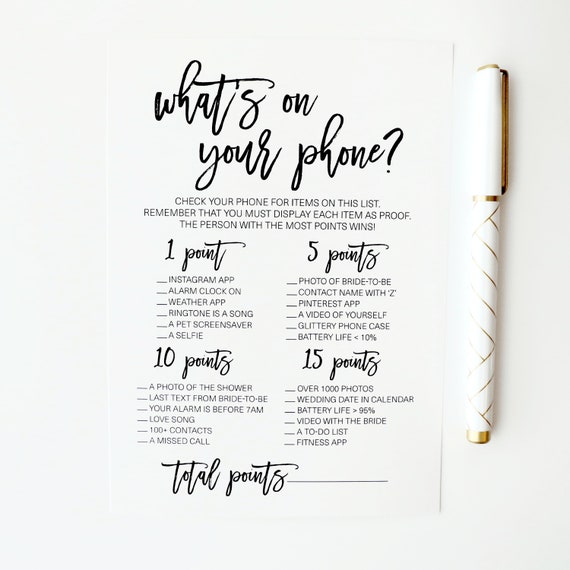 what's on
your phone?
CHECK YOUR PHONE FOR ITEMS ON THIS LIST.
REMEMBER THAT YOU MUST DISPLAY EACH ITEM AS PROOF.
THE PERSON WITH THE MOST POINTS WINS!
1 point
__ INSTAGRAM APP
__ ALARM CLOCK ON
__ WEATHER APP
__ RINGTONE IS A SONG
__ A PET SCREENSAVER
__ A SELFIE
5 points
__ PHOTO OF BRIDE-TO-BE
__ CONTACT NAME WITH 'Z'
__ PINTEREST APP
__ A VIDEO OF YOURSELF
__ GLITTERY PHONE CASE
__ BATTERY LIFE < 10%
10 points
__ A PHOTO OF THE SHOWER
__ LAST TEXT FROM BRIDE-TO-BE
__ YOUR ALARM IS BEFORE 7AM
__ LOVE SONG
__ 100+ CONTACTS
__ A MISSED CALL
15 points
__ OVER 1000 PHOTOS
__ WEDDING DATE IN CALENDAR
__ BATTERY LIFE > 95%
__ VIDEO WITH THE BRIDE
__ A TO-DO LIST
__ FITNESS APP
total points__________